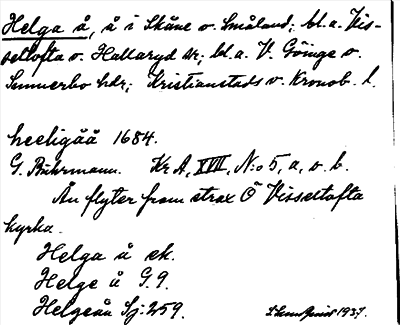 Helga å, å i Skåne o. Småland; bl. a. Vis-
seltofta o. Hallaryd sr; bl. a. V. Göinge o.
Sunnerbo hdr; Kristianstads o. Kronob. l.
heeligåå 1684.
G. Buhrmann. Kr A, XVII, N:o 5, a, o. b.
Ån flyter fram strax Ö Visseltofta
kyrka.
Helga å ek.
Helge å G. 9.
Helgeån Sj: 259.
1937.